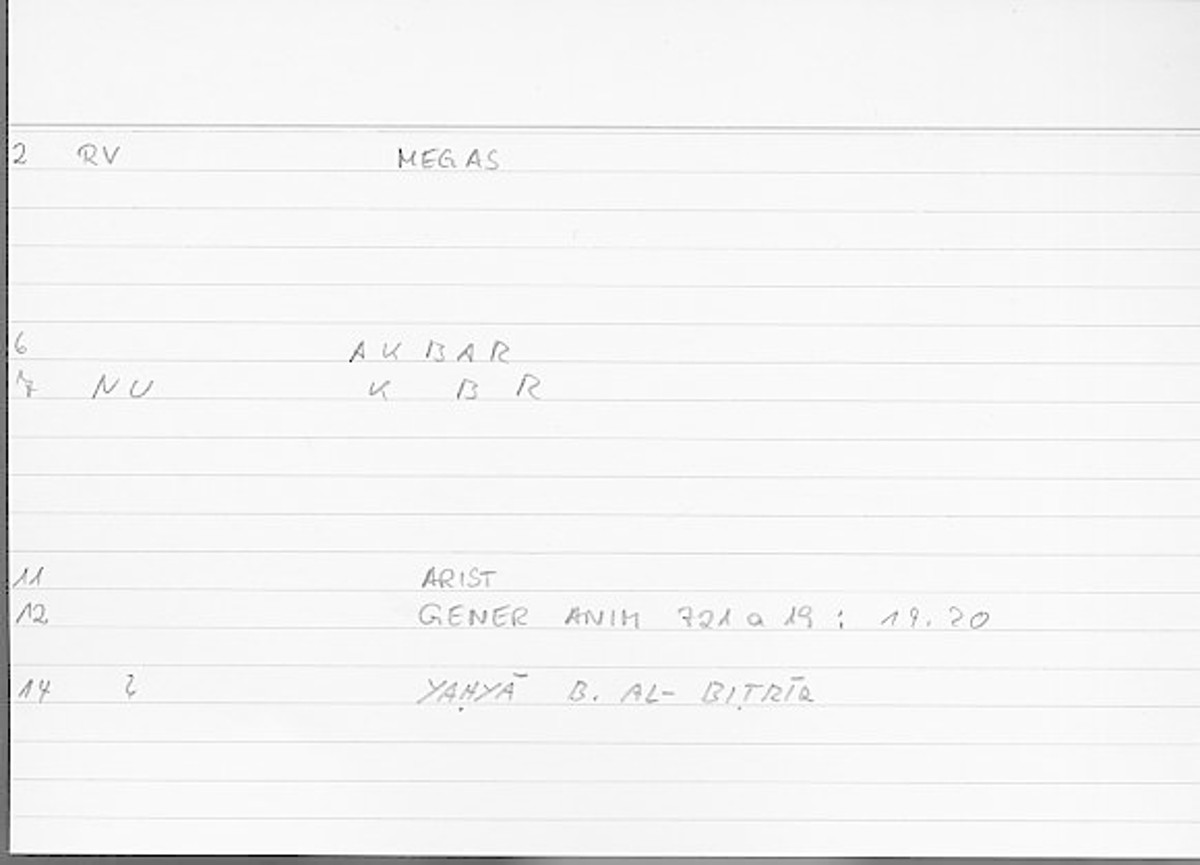 2 RV MEGAS
6 AKBAR
7 NU K B R
11 ARIST
12 GENER ANIM 721 a 19 : 19.20
14 YAḤYĀ B. AL-BIṬRĪQ